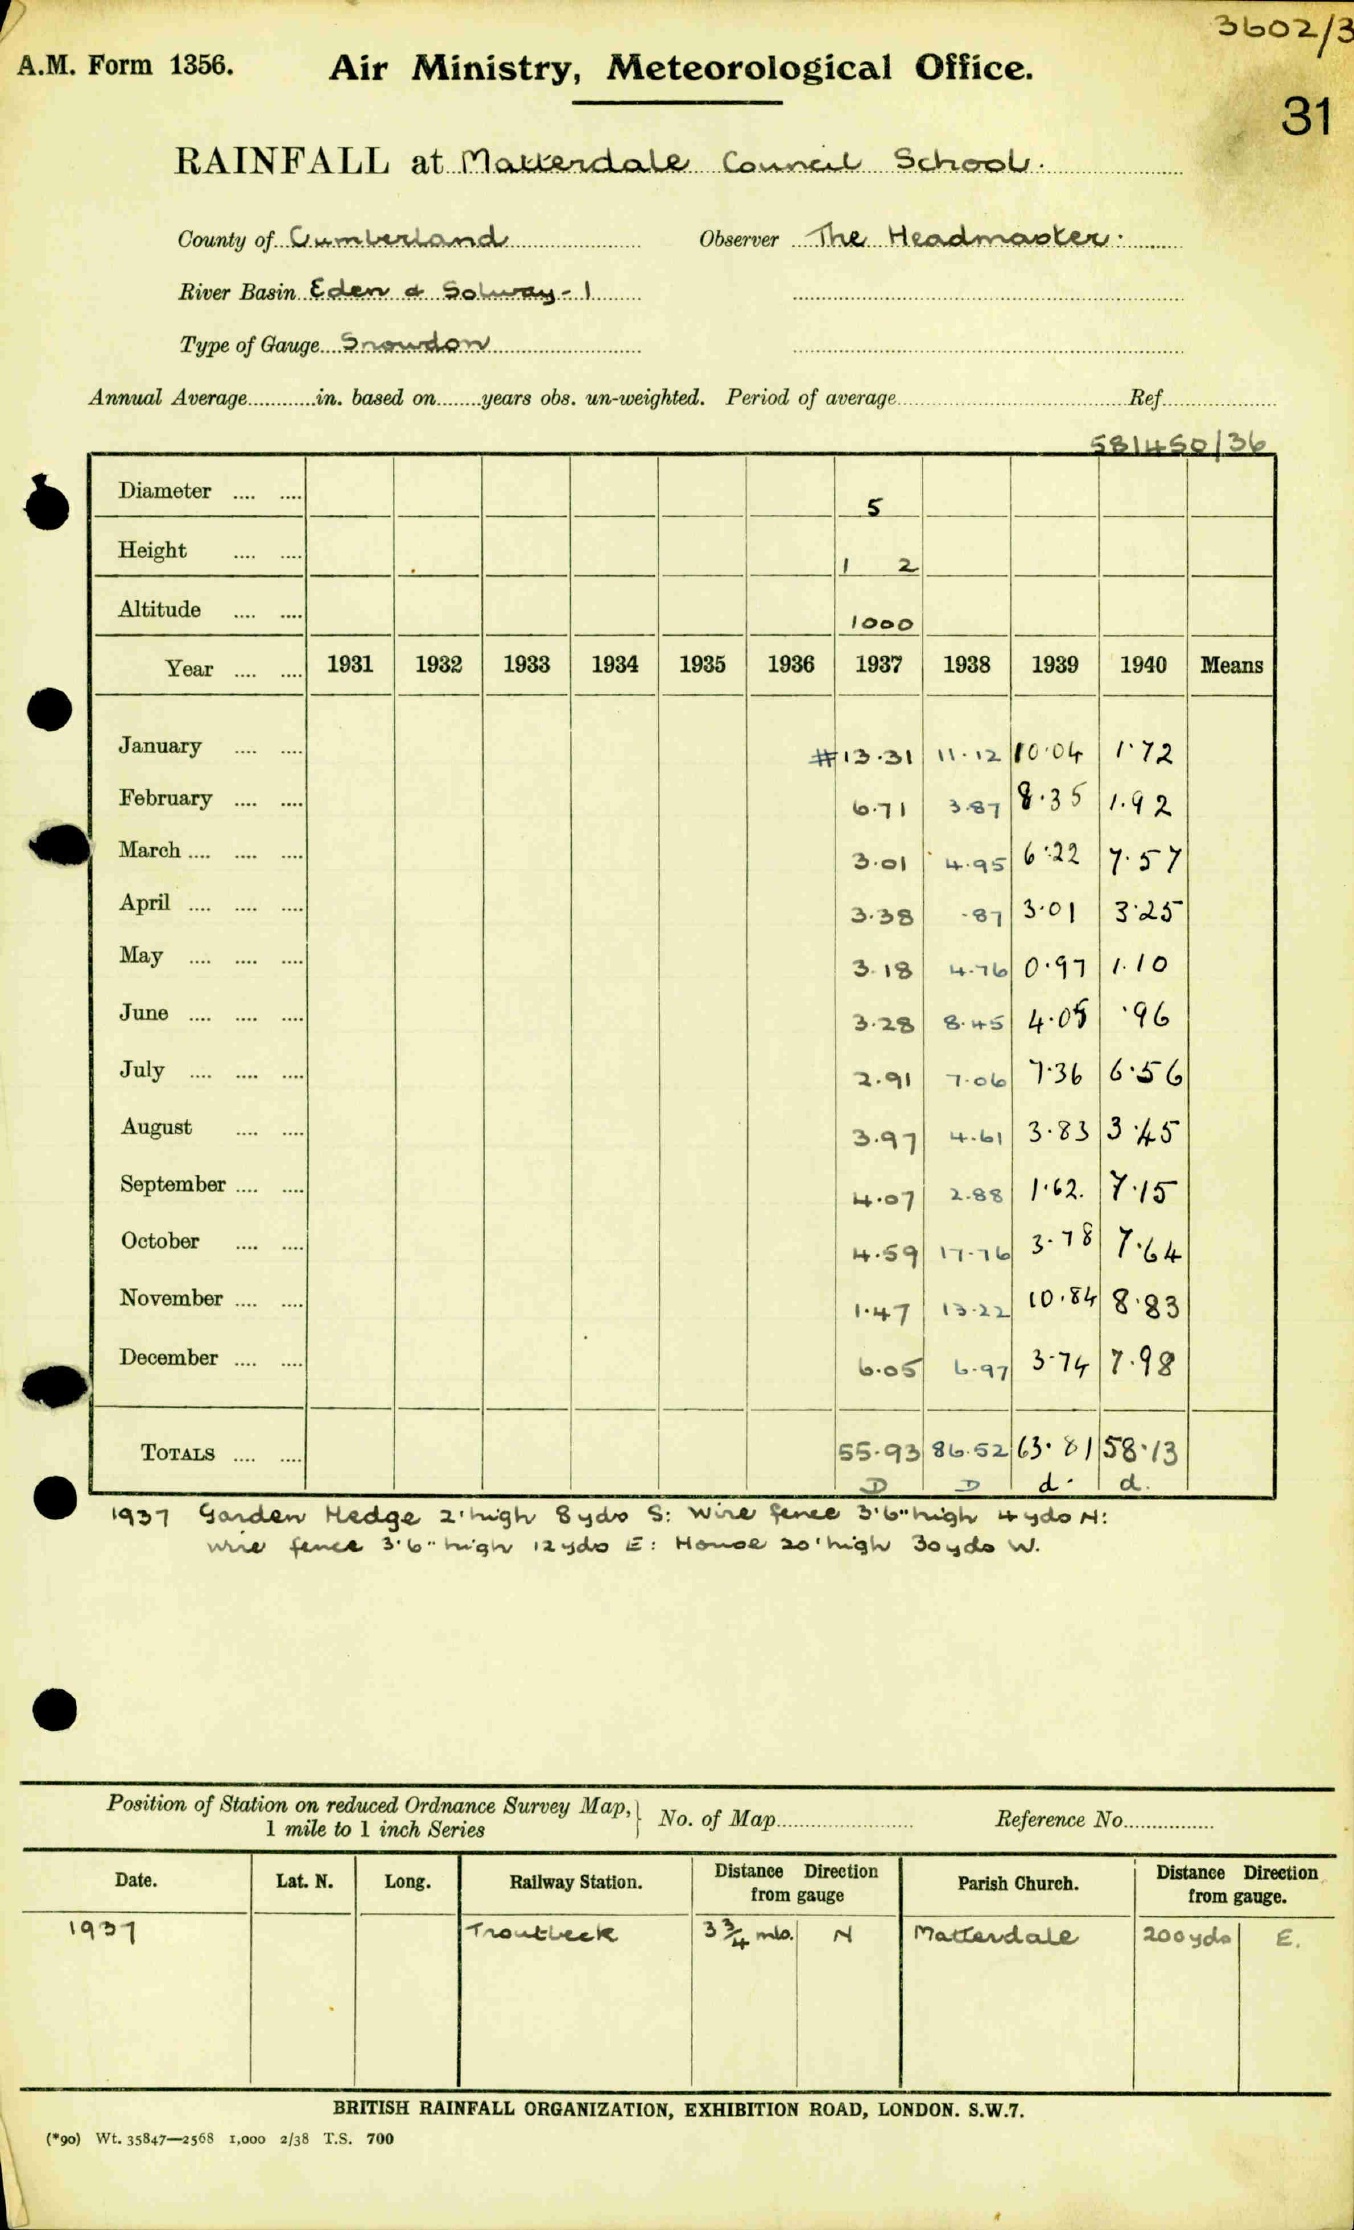 3602/3
A.M. Form 1356. Air Ministry, Meteorological Office.
31
RAINFALL at Matterdale Council School.
County of Cumberland Observer The Headmaster.
River Basin Eden & Solway - 1
Type of Gauge Snowdon
Annual Average in. based on years obs. un-weighted. Period of average Ref
581450/36
Diameter 5
Height 1 2
Altitude 1000
Year 1931 1932 1933 1934 1935 1936 1937 1938 1939 1940 Means
January #13.31 11.12 10.04 1.72
February 6.71 3.87 8.35 1.92
March 3.01 4.95 6.22 7.57
April 3.38 .87 3.01 3.25
May 3.18 4.76 0.97 1.10
June 3.28 8.45 4.05 .96
July 2.91 7.06 7.36 6.56
August 3.97 4.61 3.83 3.45
September 4.07 2.88 1.62. 7.15
October 4.59 17.76 3.78 7.64
November 1.47 13.22 10.84 8.83
December 6.05 6.97 3.74 7.98
TOTALS 55.93 86.52 63.81 58.13
D D d. d.
1937 Garden Hedge 2' high 8 yds S: Wire fence 3'6" high 4 yds N:
wire fence 3'6" high 12 yds E: House 20' high 30 yds W.
Position of Station on reduced Ordnance Survey Map, 1 mile to 1 inch Series } No. of Map Reference No.
Date. Lat. N. Long. Railway Station. Distance Direction from gauge Parish Church. Distance Direction from gauge.
1937 Troutbeck 3 3/4 mls. N Matterdale 200 yds E.
BRITISH RAINFALL ORGANIZATION, EXHIBITION ROAD, LONDON. S.W.7.
(*90) Wt. 35847—2568 1,000 2/38 T.S. 700